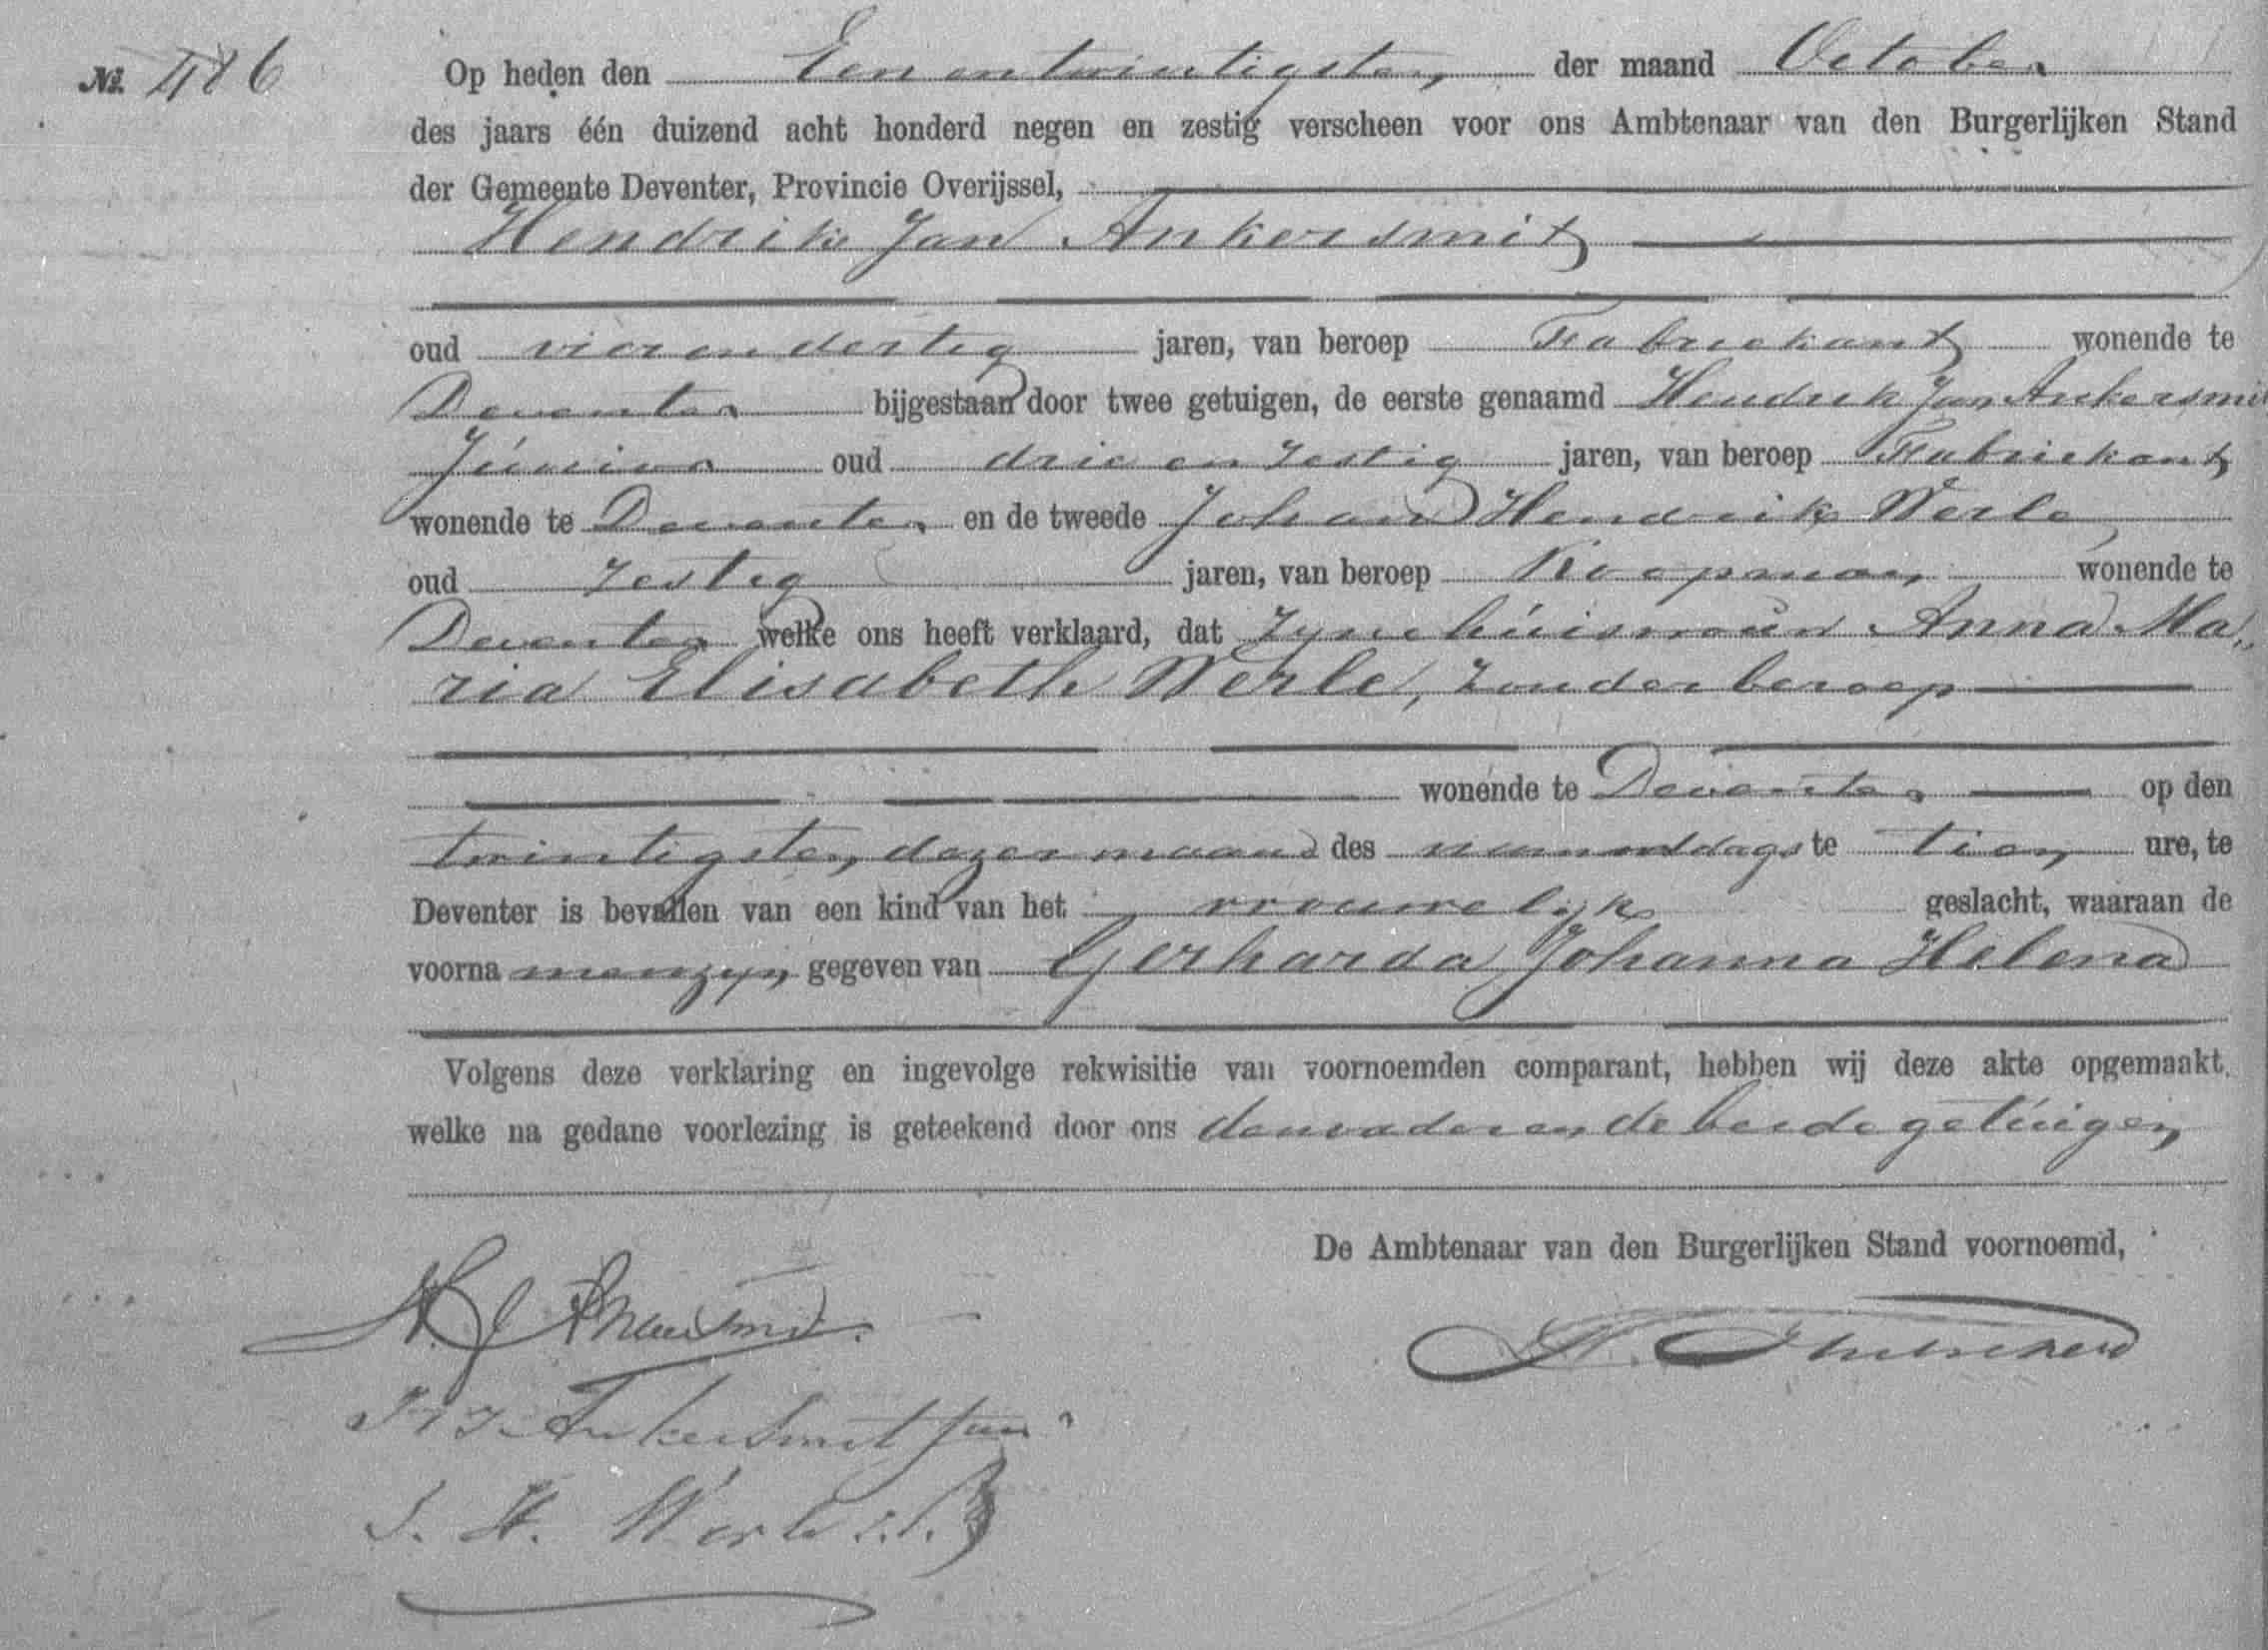 No. 486
Op heden den Een en twintigsten der maand October
des jaars één duizend acht honderd negen en zestig verscheen voor ons Ambtenaar van den Burgerlijken Stand
der Gemeente Deventer, Provincie Overijssel,
Hendrik Jan Ankersmit
oud vier en dertig jaren, van beroep Fabriekant wonende te
Deventer bijgestaan door twee getuigen, de eerste genaamd Hendrik Jan Ankersmit
Júnior oud drie en zestig jaren, van beroep Fabriekant
wonende te Deventer en de tweede Johan Hendrik Werle
oud zestig jaren, van beroep Koopman wonende te
Deventer welke ons heeft verklaard, dat zyne húisvroúw Anna Ma„
ria Elisabeth Werle, zonder beroep
wonende te Deventer op den
twintigsten dezer maand des namiddags te tien ure, te
Deventer is bevallen van een kind van het vrouwelijk geslacht, waaraan de
voorna men zyn gegeven van Gerharda Johanna Helena
Volgens deze verklaring en ingevolge rekwisitie van voornoemden comparant, hebben wij deze akte opgemaakt,
welke na gedane voorlezing is geteekend door ons den vader en de beide getúigen
De Ambtenaar van den Burgerlijken Stand voornoemd,
H J Ankersmit
H J Ankersmit Junr
J. H. Werle